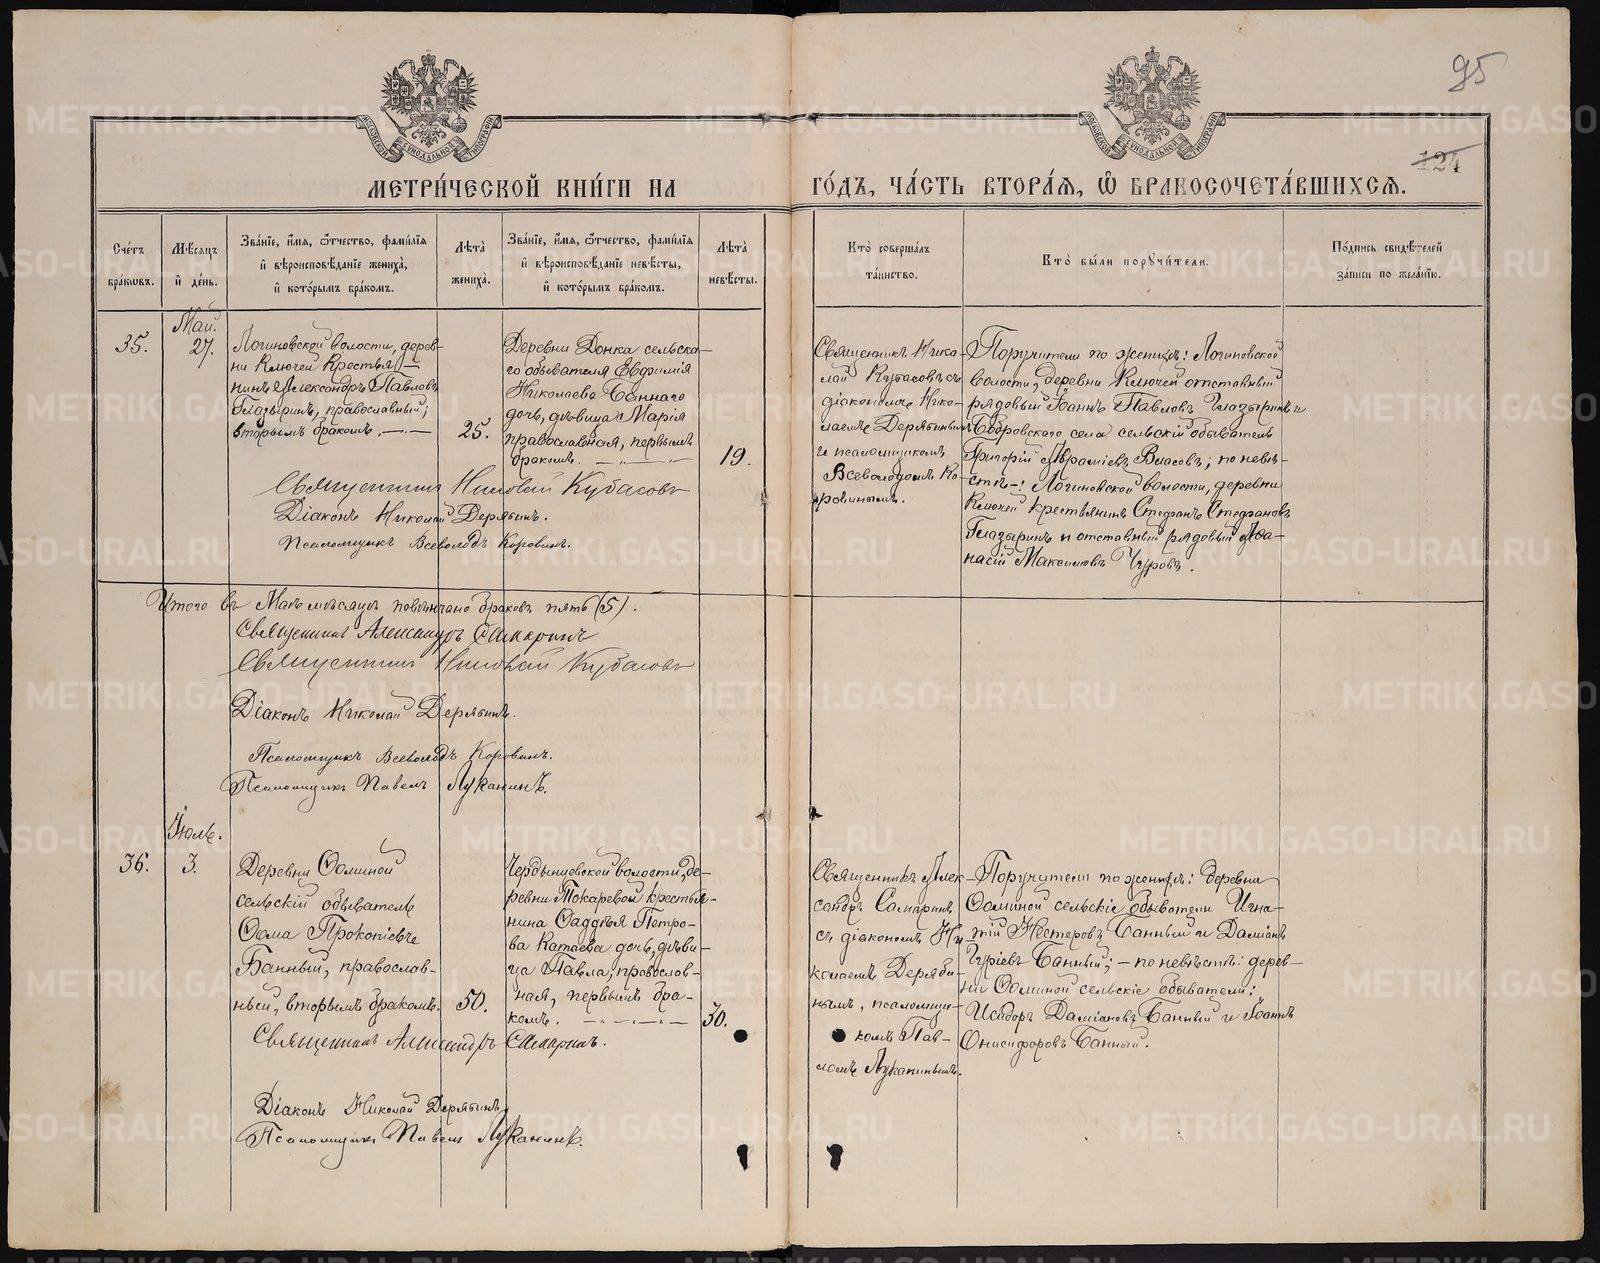 95
124
МОСКОВСКОЙ СѴНОДАЛЬНОЙ ТИПОГРАФІИ
МОСКОВСКОЙ СѴНОДАЛЬНОЙ ТИПОГРАФІИ
МЕТРИ́ЧЕСКОЙ КНИ́ГИ НА
ГО́ДЪ, ЧА́СТЬ ВТОРА́Я, Ѡ҆ БРАКОСОЧЕТА́ВШИХСЯ.
Сче́тъ
бра́ковъ.
Мѣ́сяцъ
и҆ де́нь.
Зва́нїе, и҆́мя, ѻ҆́тчество, фами́лїя
и҆ вѣроисповѣ́данїе жениха̀,
и҆ кото́рымъ бра́комъ.
Лѣта̀
жениха̀.
Зва́нїе, и҆́мя, ѻ҆́тчество, фами́лїя
и҆ вѣроисповѣ́данїе невѣ́сты,
и҆ кото́рымъ бра́комъ.
Лѣта̀
невѣ́сты.
Кто̀ соверша́лъ
та́инство.
Кто̀ бы́ли порꙋчи́тели.
По́дпись свидѣ́телей
за́писи по жела́нїю.
Май.
35.
27.
Логиновской волости, дерев-
ни Ключей крестья-
нинъ Александръ Павловъ
Глазыринъ, православный;
вторымъ бракомъ.
25.
Деревни Донка сельска-
го обывателя Евфимія
Николаева Баннаго
дочь, дѣвица Марія
православная, первымъ
бракомъ.
19.
Священникъ Нико-
лай Кубасовъ съ
діакономъ Нико-
лаемъ Дерябинымъ
и псаломщикомъ
Всеволодомъ Ко-
ровинымъ.
Поручители по женихѣ: Логиновской
волости, деревни Ключей отставный
рядовый Іоаннъ Павловъ Глазыринъ и
Бобровскаго села сельскій обыватель
Григорій Авраміевъ Власовъ; по невѣ-
стѣ: Логиновской волости, деревни
Ключей крестьянинъ Стефанъ Стефановъ
Глазыринъ и отставный рядовый Аѳа-
насій Максимовъ Чуровъ.
Священникъ Николай Кубасовъ
Діаконъ Николай Дерябинъ.
Псаломщикъ Всеволодъ Коровинъ.
Итого въ Маѣ мѣсяцѣ повѣнчано браковъ пять (5).
Священникъ Александръ Самаринъ
Священникъ Николай Кубасовъ
Діаконъ Николай Дерябинъ.
Псаломщикъ Всеволодъ Коровинъ.
Псаломщикъ Павелъ Луканинъ.
Іюль.
36.
3.
Деревни Ѳоминой
сельскій обыватель
Ѳома Прокопіевъ
Банный, православ-
ный, вторымъ бракомъ.
50.
волости, де-
ревни Токаревой крестья-
нина Ѳаддея Петро-
ва Катаева дочь, дѣви-
ца Павла, православ-
ная, первымъ бра-
комъ.
30.
Священникъ Алек-
сандръ Самаринъ
съ діакономъ Ни-
колаемъ Деряби-
нымъ, псаломщи-
комъ Пав-
ломъ Луканинымъ.
Поручители по женихѣ: деревни
Ѳоминой сельскіе обыватели Игна-
тій Нестеровъ Банный и Даміанъ
Гуріевъ Банный; — по невѣстѣ: дерев-
ни Ѳоминой сельскіе обыватели:
Исидоръ Даміановъ Банный и Іоаннъ
Онисифоровъ Банный.
Священникъ Александръ Самаринъ.
Діаконъ Николай Дерябинъ
Псаломщикъ Павелъ Луканинъ.
METRIKI.GASO-URAL.RU